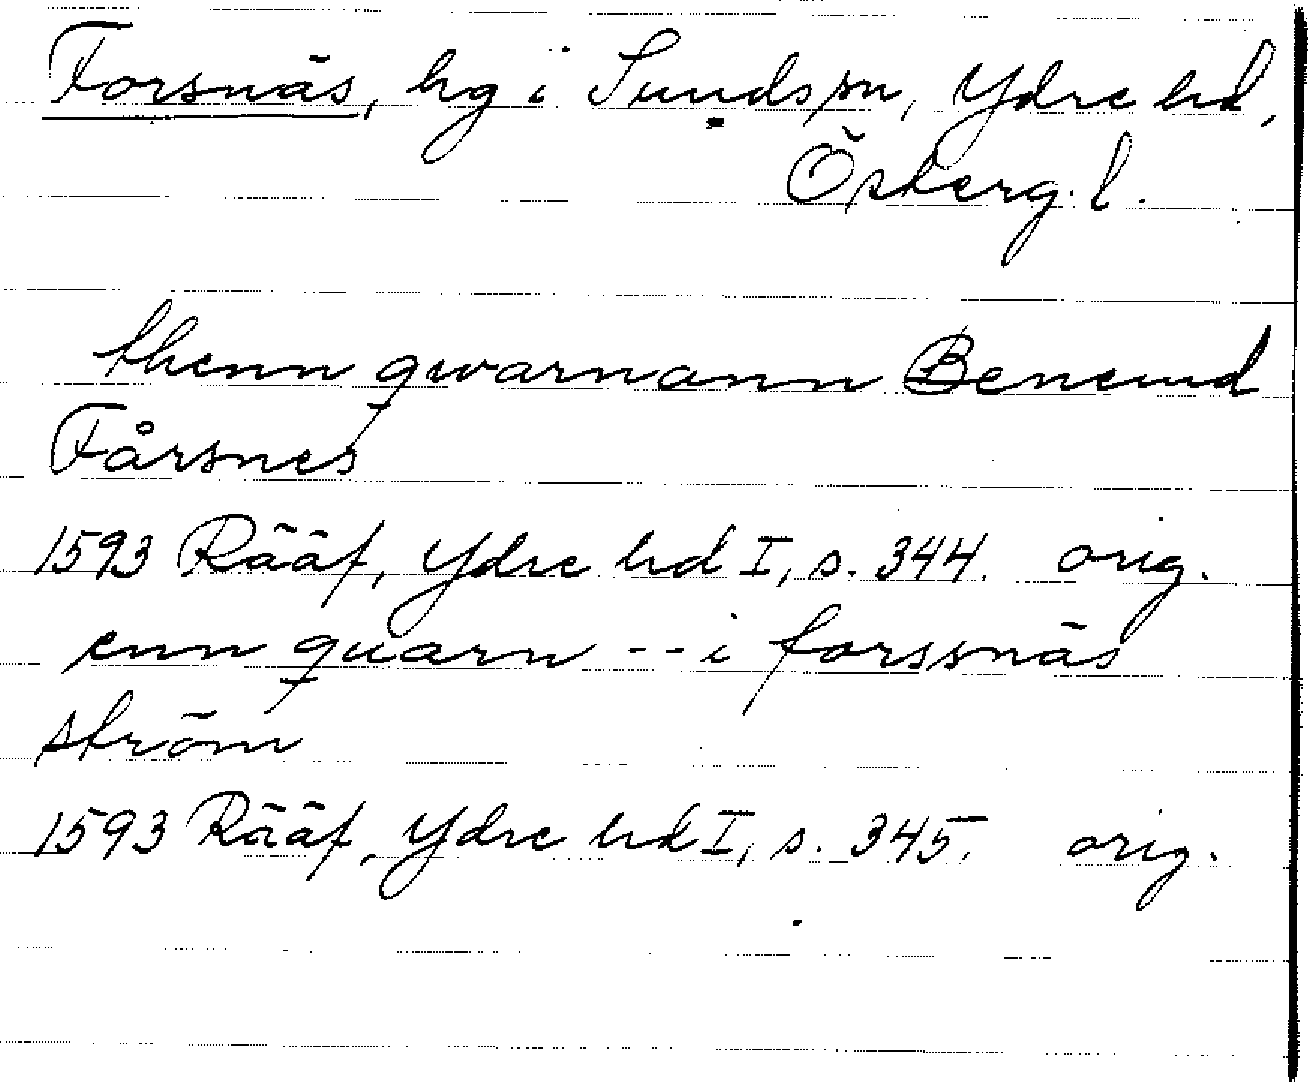 Forsnäs, hg i Sunds sn, Ydre hd,
Österg. l.
thenn qwarnann Benemd
Fårsnes
1593 Rääf, Ydre hd I, s. 344. orig.
enn quarn -- i forssnäs
ström
1593 Rääf, Ydre hd I, s. 345. orig.